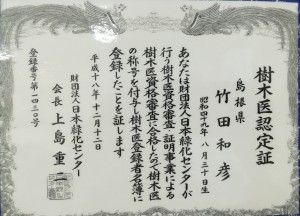 樹木医認定証
島根県
竹田和彦
昭和四十九年八月三十日生
あなたは財団法人日本緑化センターが
行う樹木医資格審査・証明事業による
樹木医資格審査に合格したので樹木医
の称号を付与し樹木医登録者名簿に
登録したことを証します
平成十八年十二月十二日
財団法人日本緑化センター
会長 上島重二
登録番号第一四三〇号